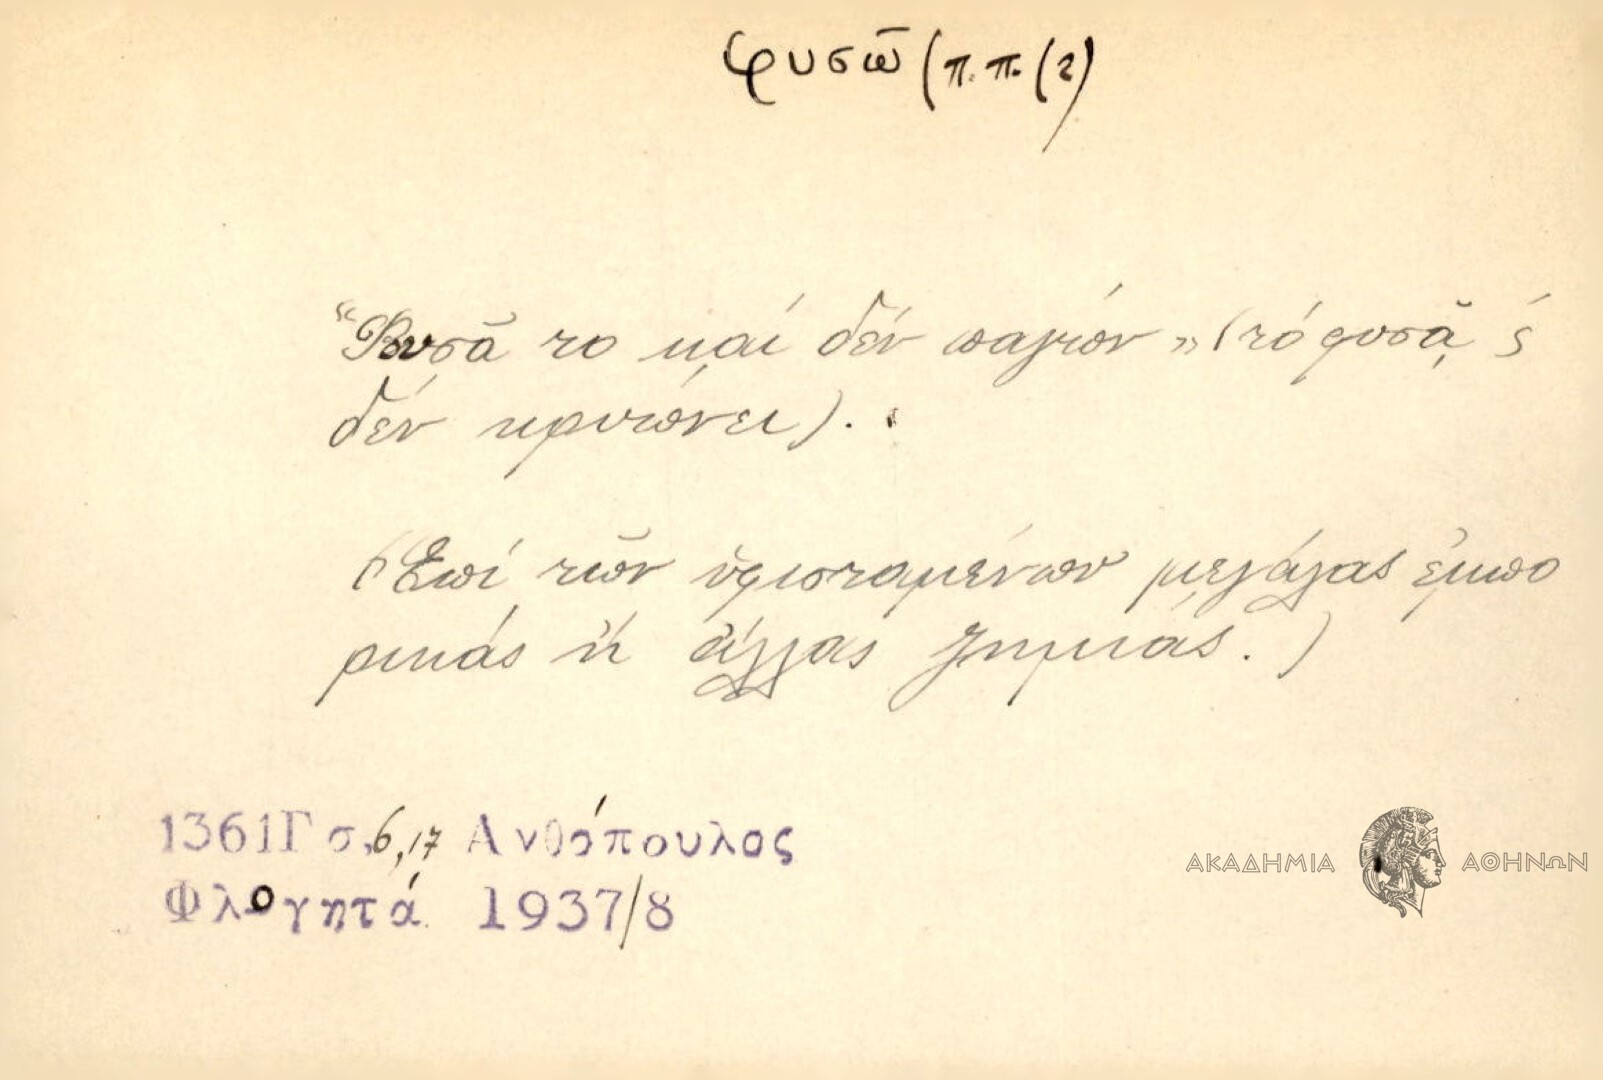 φυσῶ (π.π. (2)
"Φυσᾶ το καί δέν παγών" (τό φυσᾷ ϛ
δέν κρυώνει).
(Ἐπί τῶν ὑφισταμένων μεγάλας ἐμπο
ρικάς ἤ ἄλλας ζημίας.)
1361Γ σ,6,17 Ανθόπουλος
Φλογητά 1937/8
ΑΚΑΔΗΜΙΑ ΑΘΗΝΩΝ